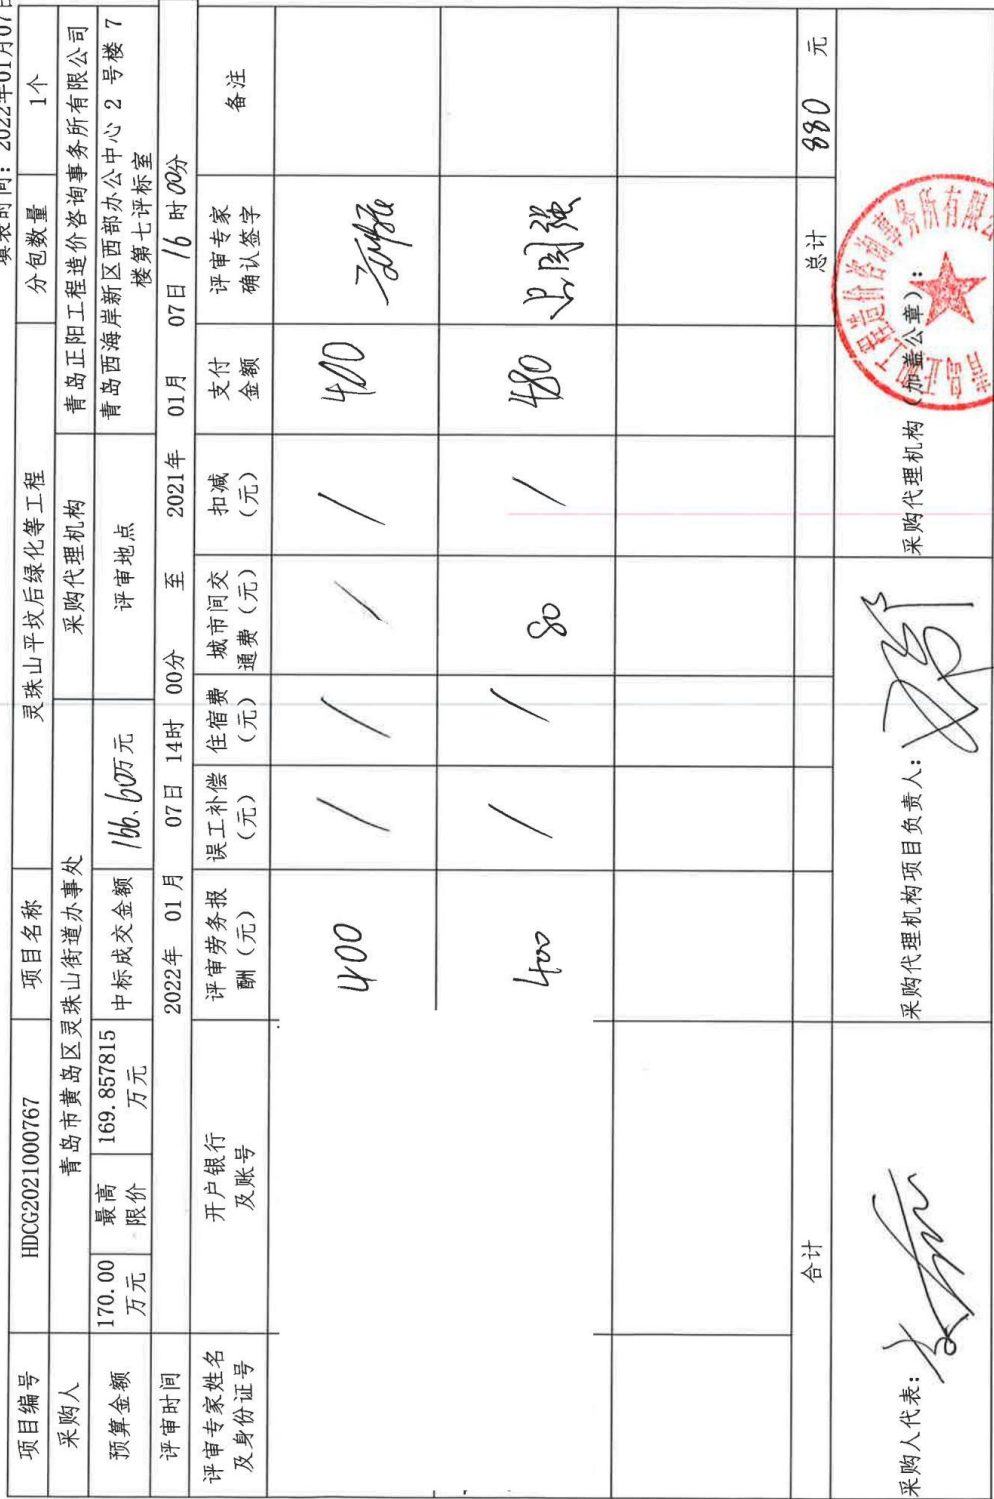 填表时间：2022年01月07日
项目编号 HDCG2021000767 项目名称 灵珠山平坟后绿化等工程 分包数量 1个
采购人 青岛市黄岛区灵珠山街道办事处 采购代理机构 青岛正阳工程造价咨询事务所有限公司
预算金额 170.00万元 最高限价 169.857815万元 中标成交金额 166.60万元 评审地点 青岛西海岸新区西部办公中心 2 号楼 7楼第七评标室
评审时间 2022年 01月 07日 14时 00分 至 2021年 01月 07日 16时00分
评审专家姓名及身份证号 开户银行及账号 评审劳务报酬（元） 误工补偿（元） 住宿费（元） 城市间交通费（元） 扣减（元） 支付金额 评审专家确认签字 备注
400 / / / / 400
400 / / 80 / 480
合计 总计 880 元
采购人代表： 采购代理机构项目负责人： 采购代理机构（加盖公章）：